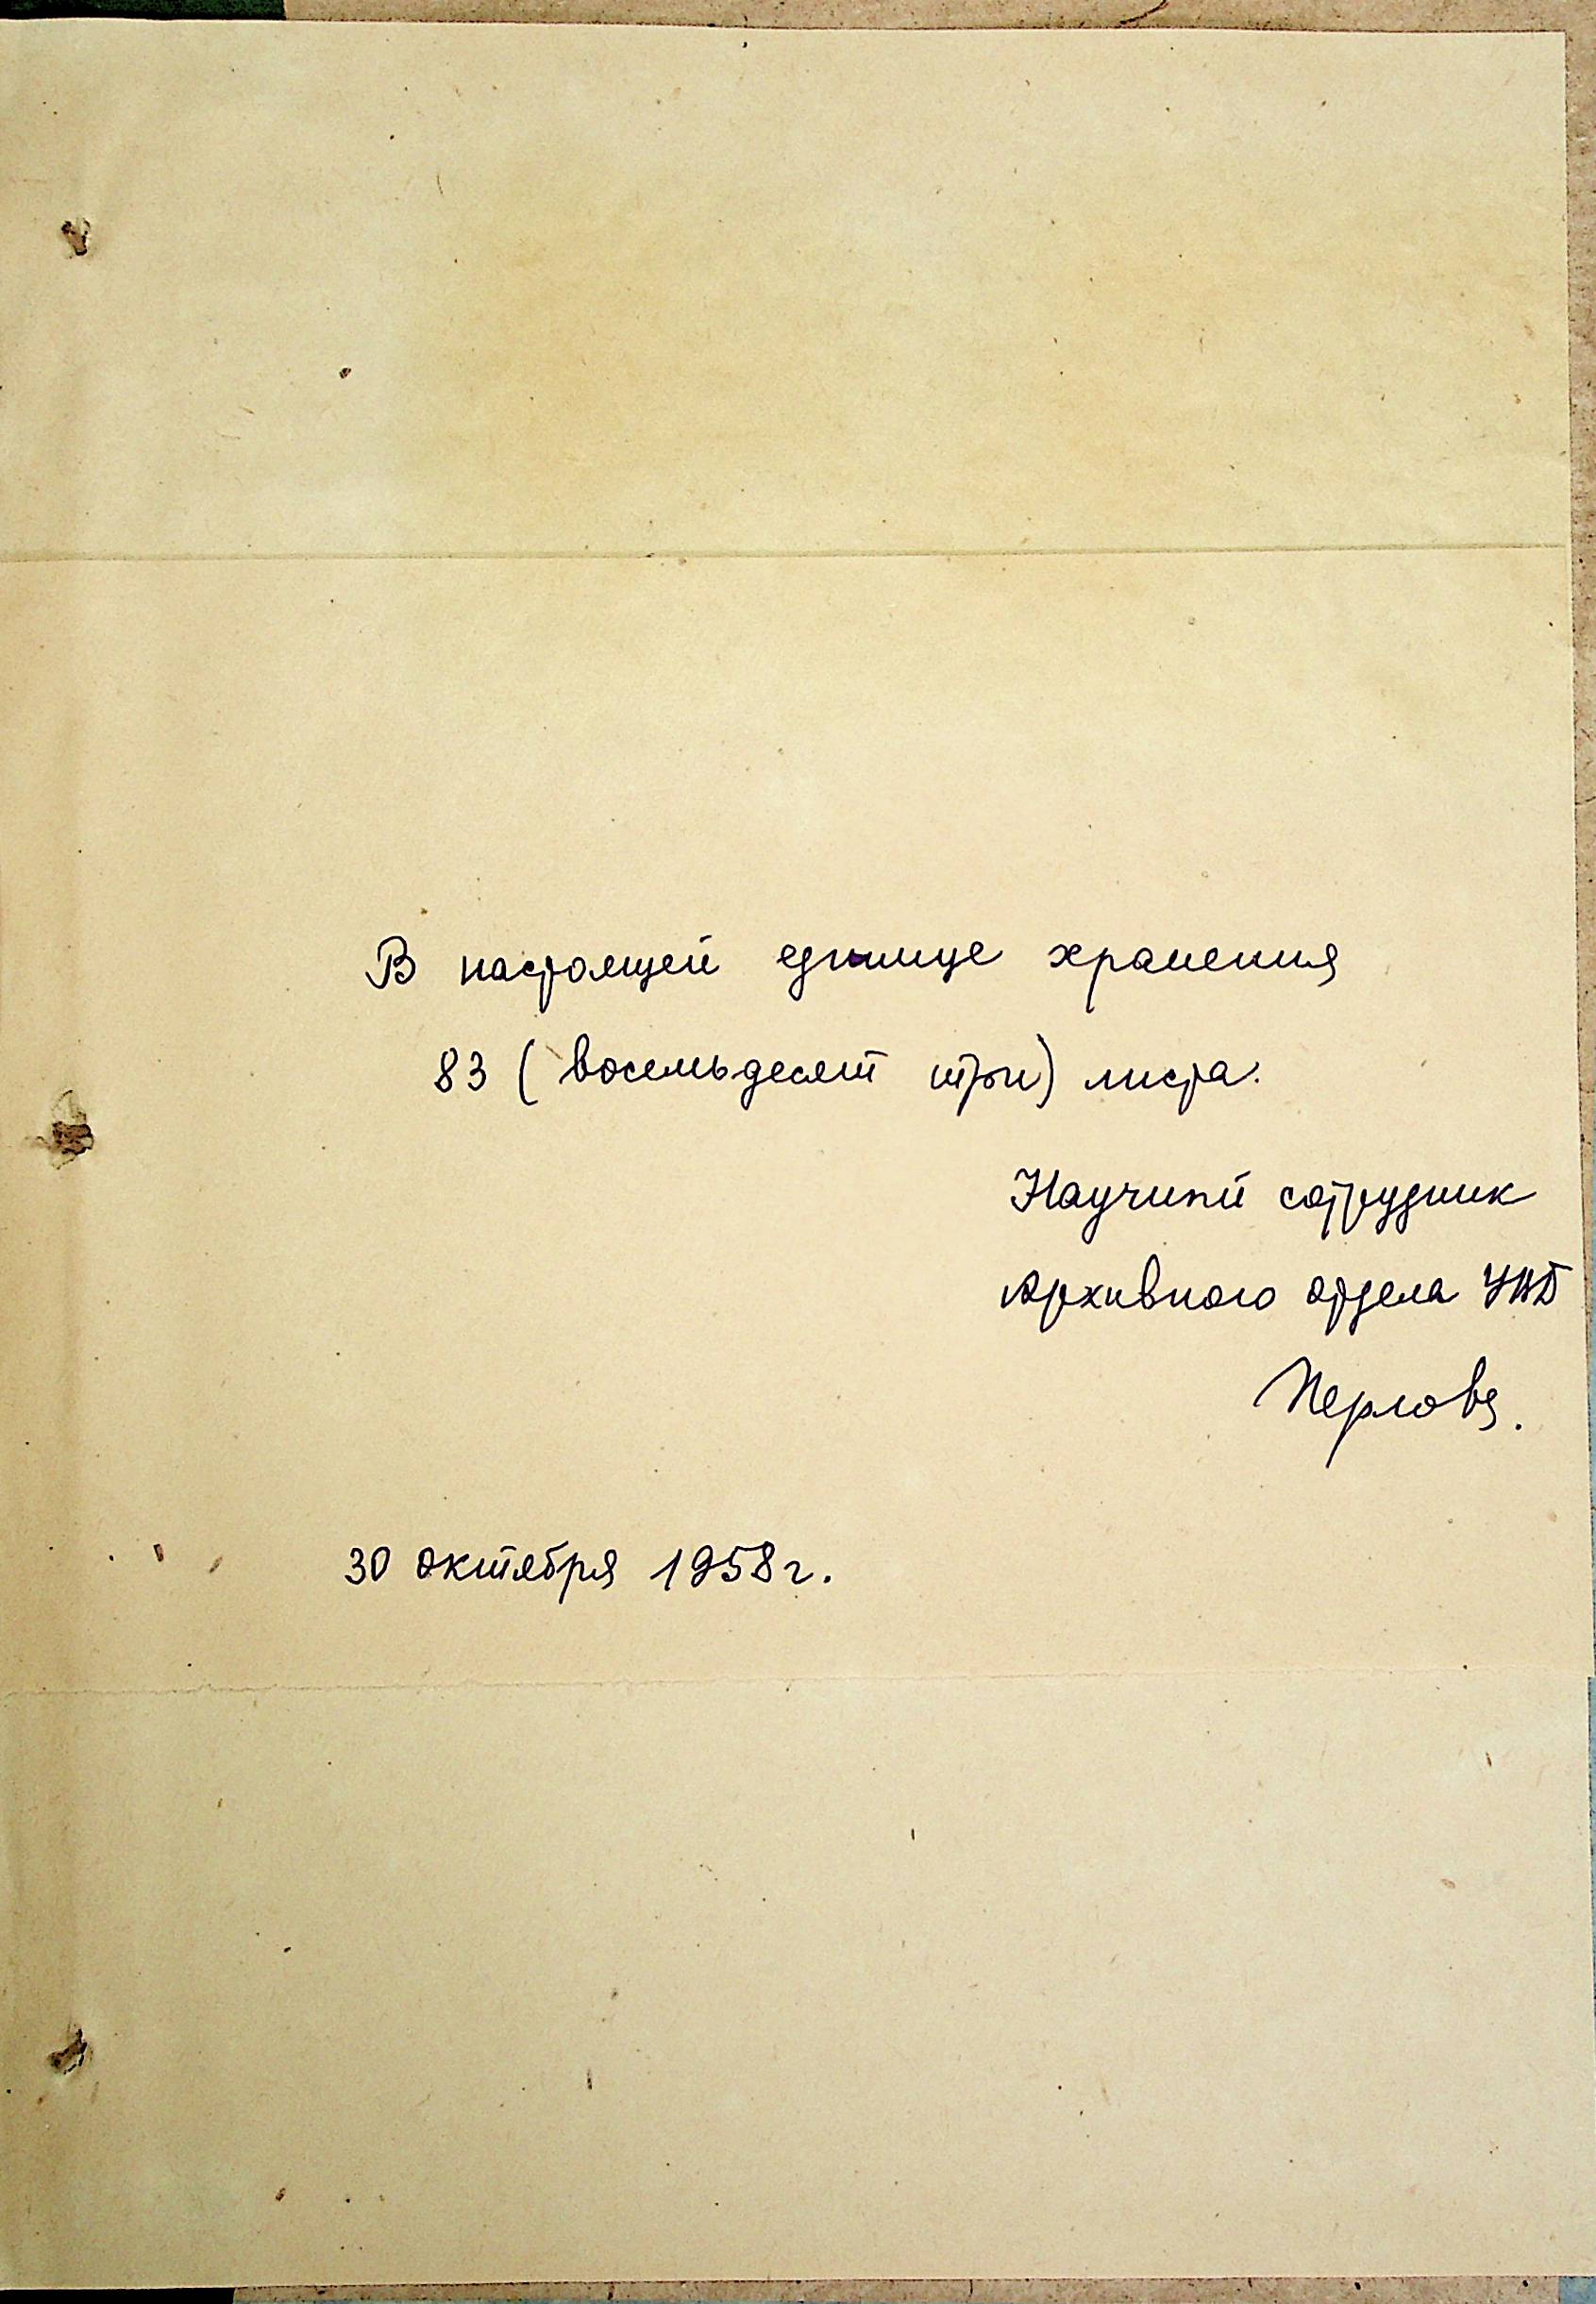 В настоящей единице хранения
83 (восемьдесят три) листа.
Научный сотрудник
Архивного отдела
Перлова.
30 октября 1958 г.